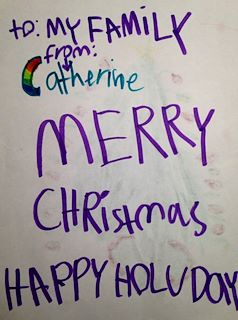 to: MY FAMILY
from:
Catherine
MERRY
CHRistmas
HAPPY HOLUDOY